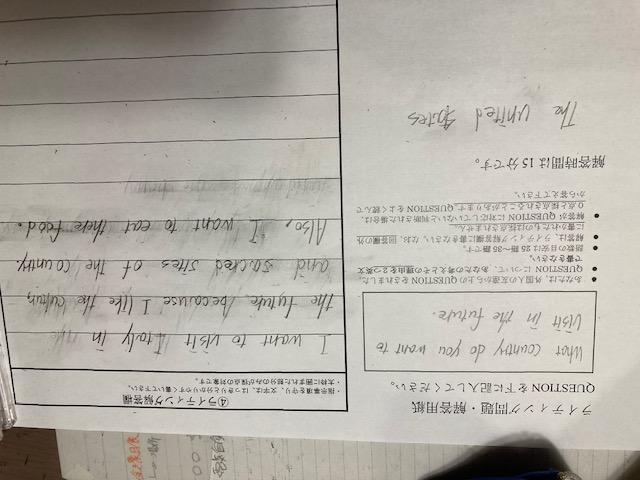 ライティング問題・解答用紙
QUESTION を下に記入してください。
What country do you want to
visit in the future.
● あなたは、外国人の友達から上の QUESTION をされました。
● QUESTION について、あなたの考えとその理由を2つ英文
で書きなさい。
● 語数の目安は 25 語～35 語です。
● 解答は、ライティング解答欄に書きなさい。なお、回答欄の外
に書かれたものは採点されません。
● 解答が QUESTION に対応していないと判断された場合は、
0 点と採点されることがあります。QUESTION をよく読んで
から答えて下さい。
解答時間は 15 分です。
The United States
④ライティング解答欄
・指示事項を守り、文字は、はっきりと分かりやすく書いて下さい。
・太枠に囲まれた部分のみが採点の対象です。
I want to visit Italy in
the future because I like the culture,
and sacred sites of the country.
Also, I want to eat there food.